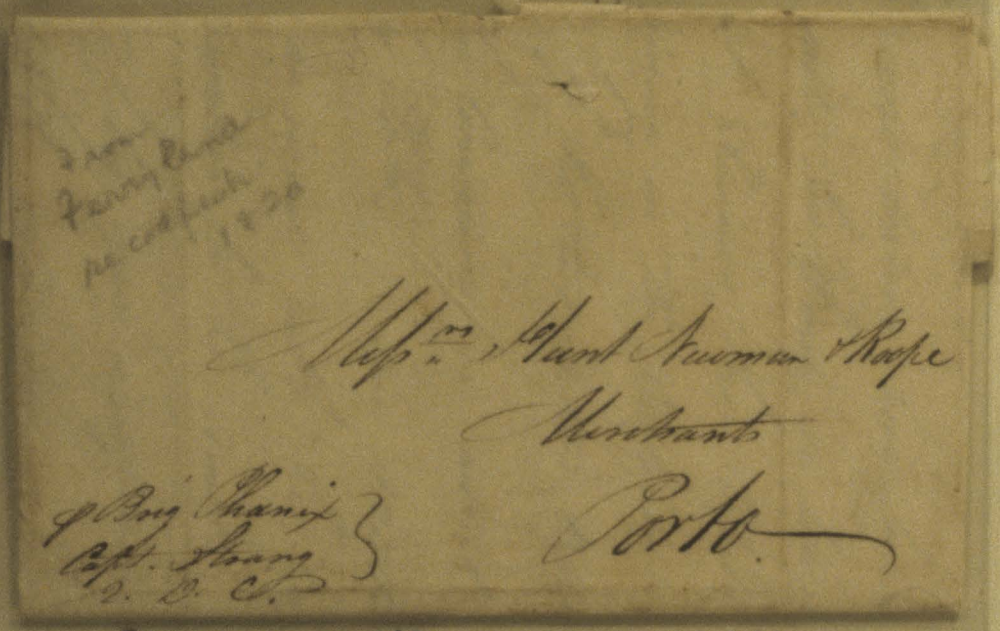 From
Ferryland
re codfish
1820
Messrs Hunt Newman & Roope
Merchants
Porto.
p Brig Phœnix
Capt. Strang
Q. D. C.